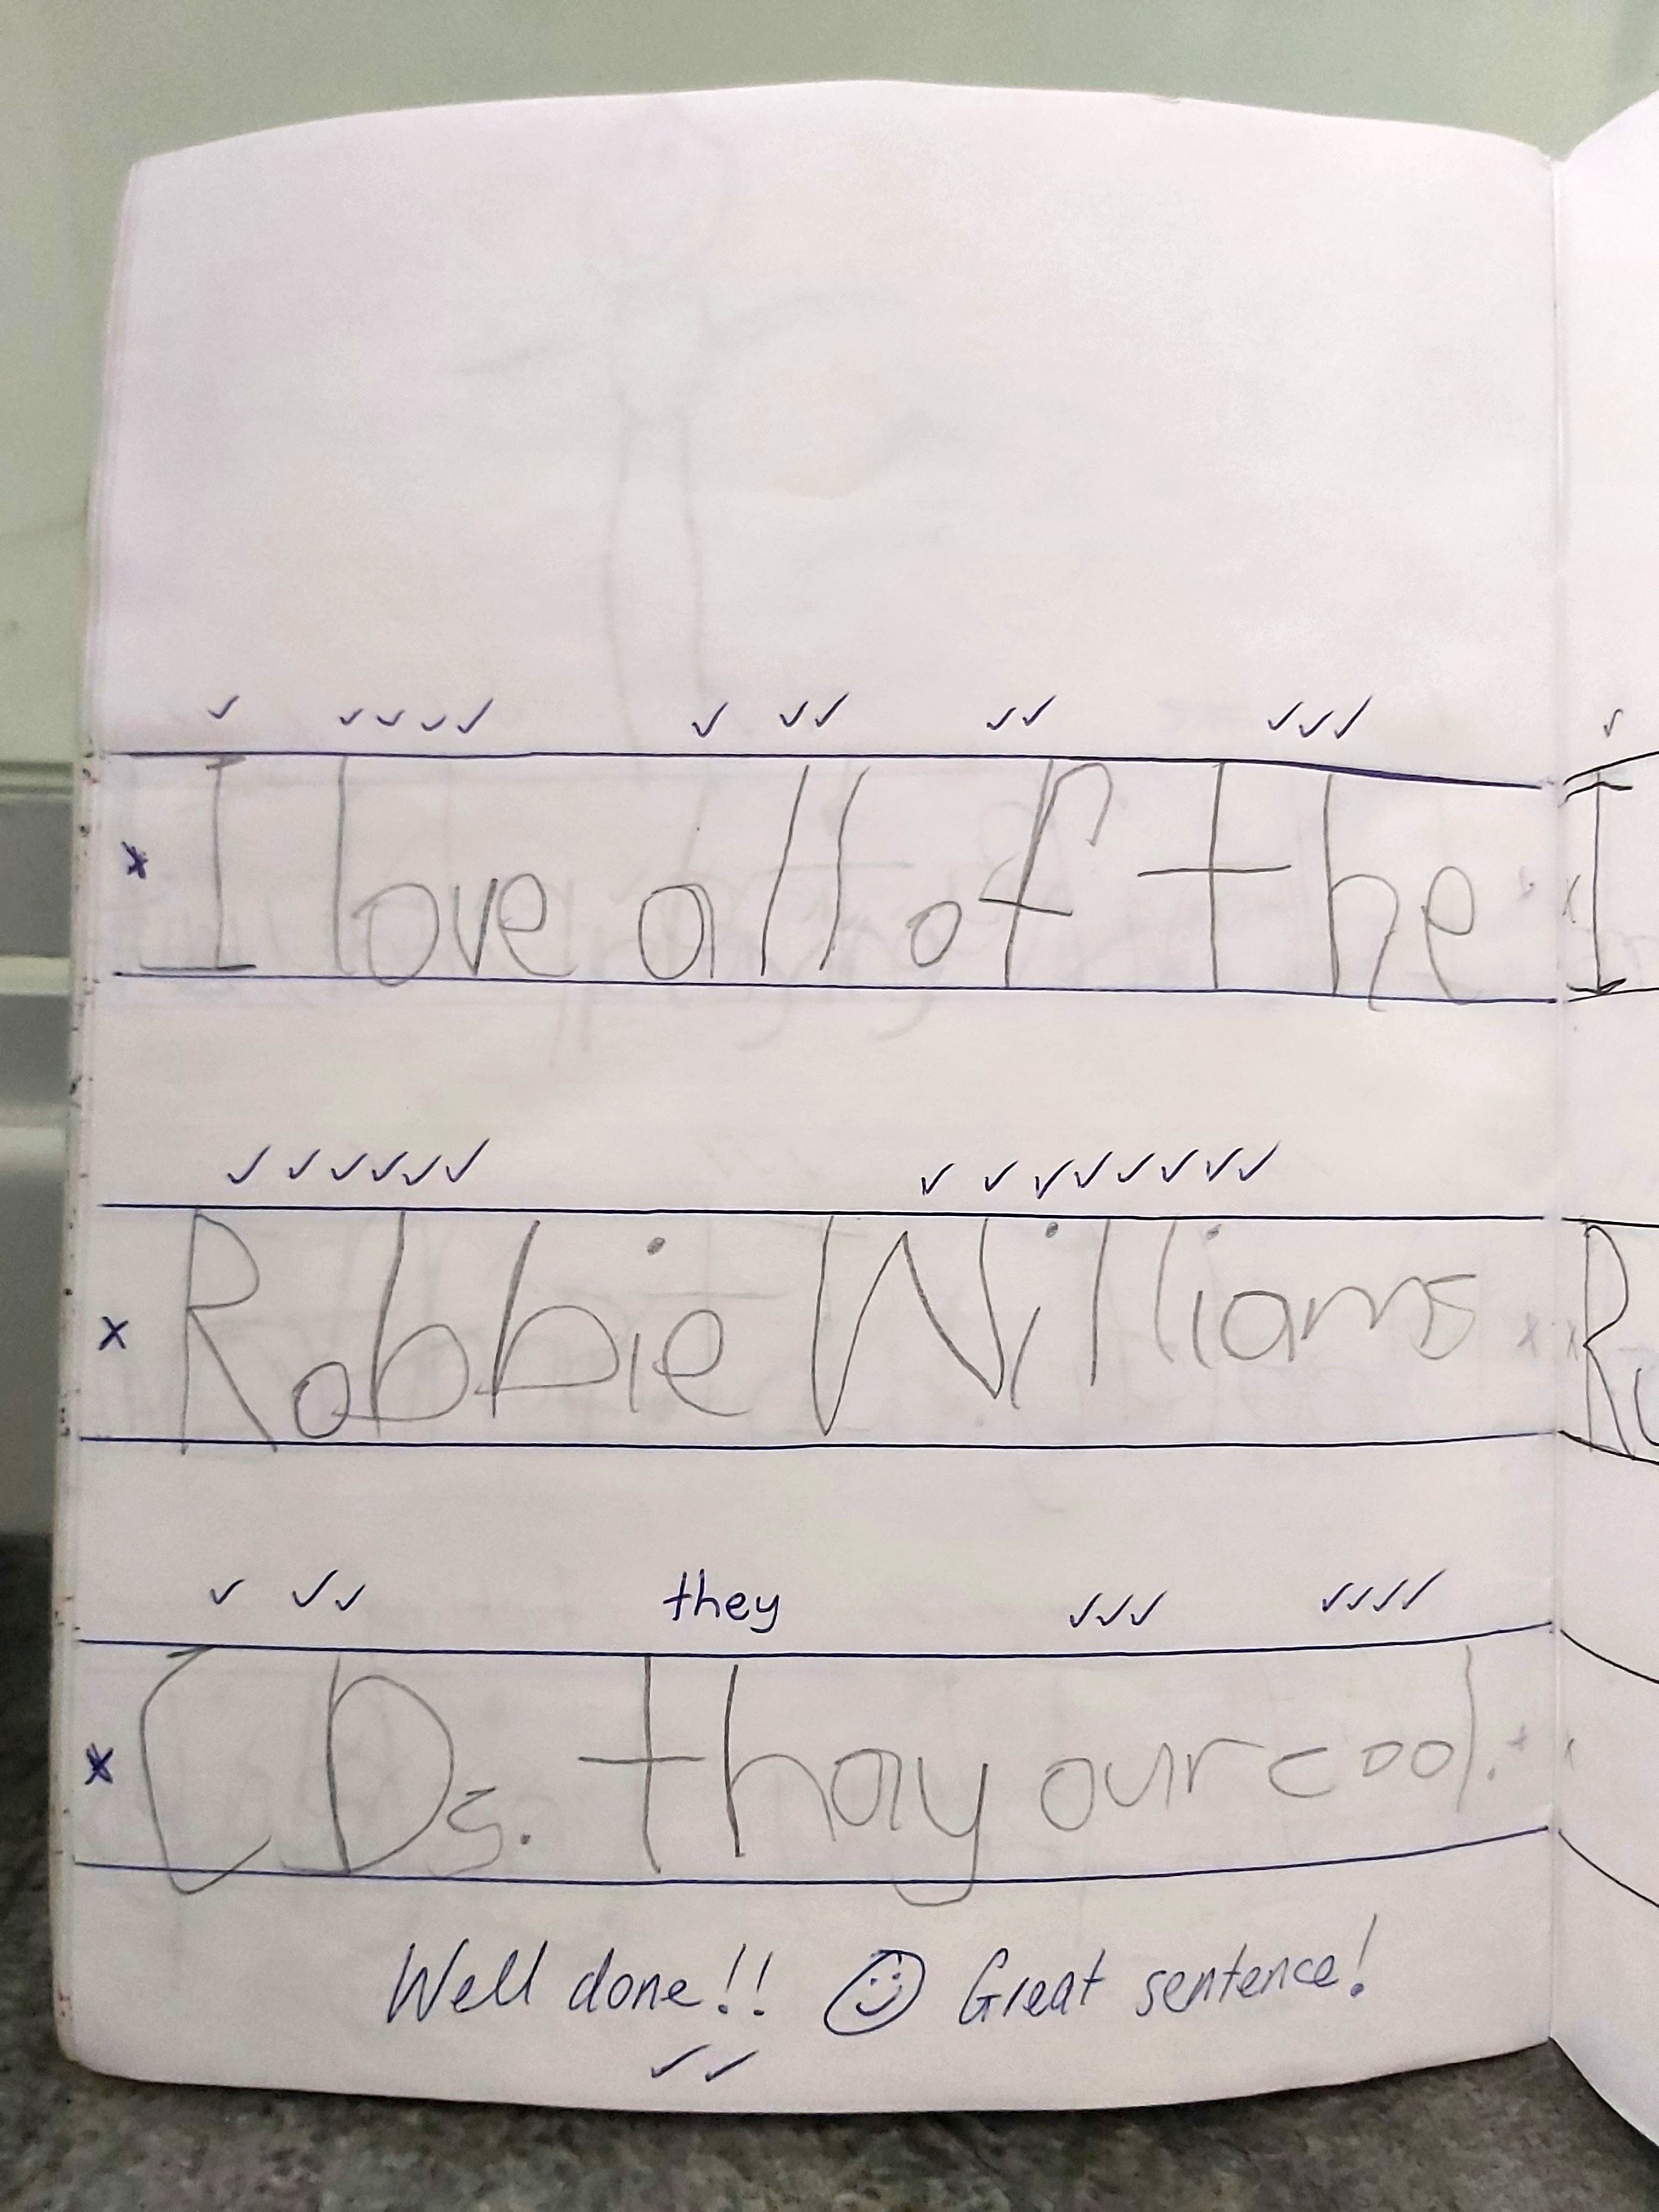 I love all of the
Robbie Williams
they
CDs. thay our cool.
Well done!! Great sentence!